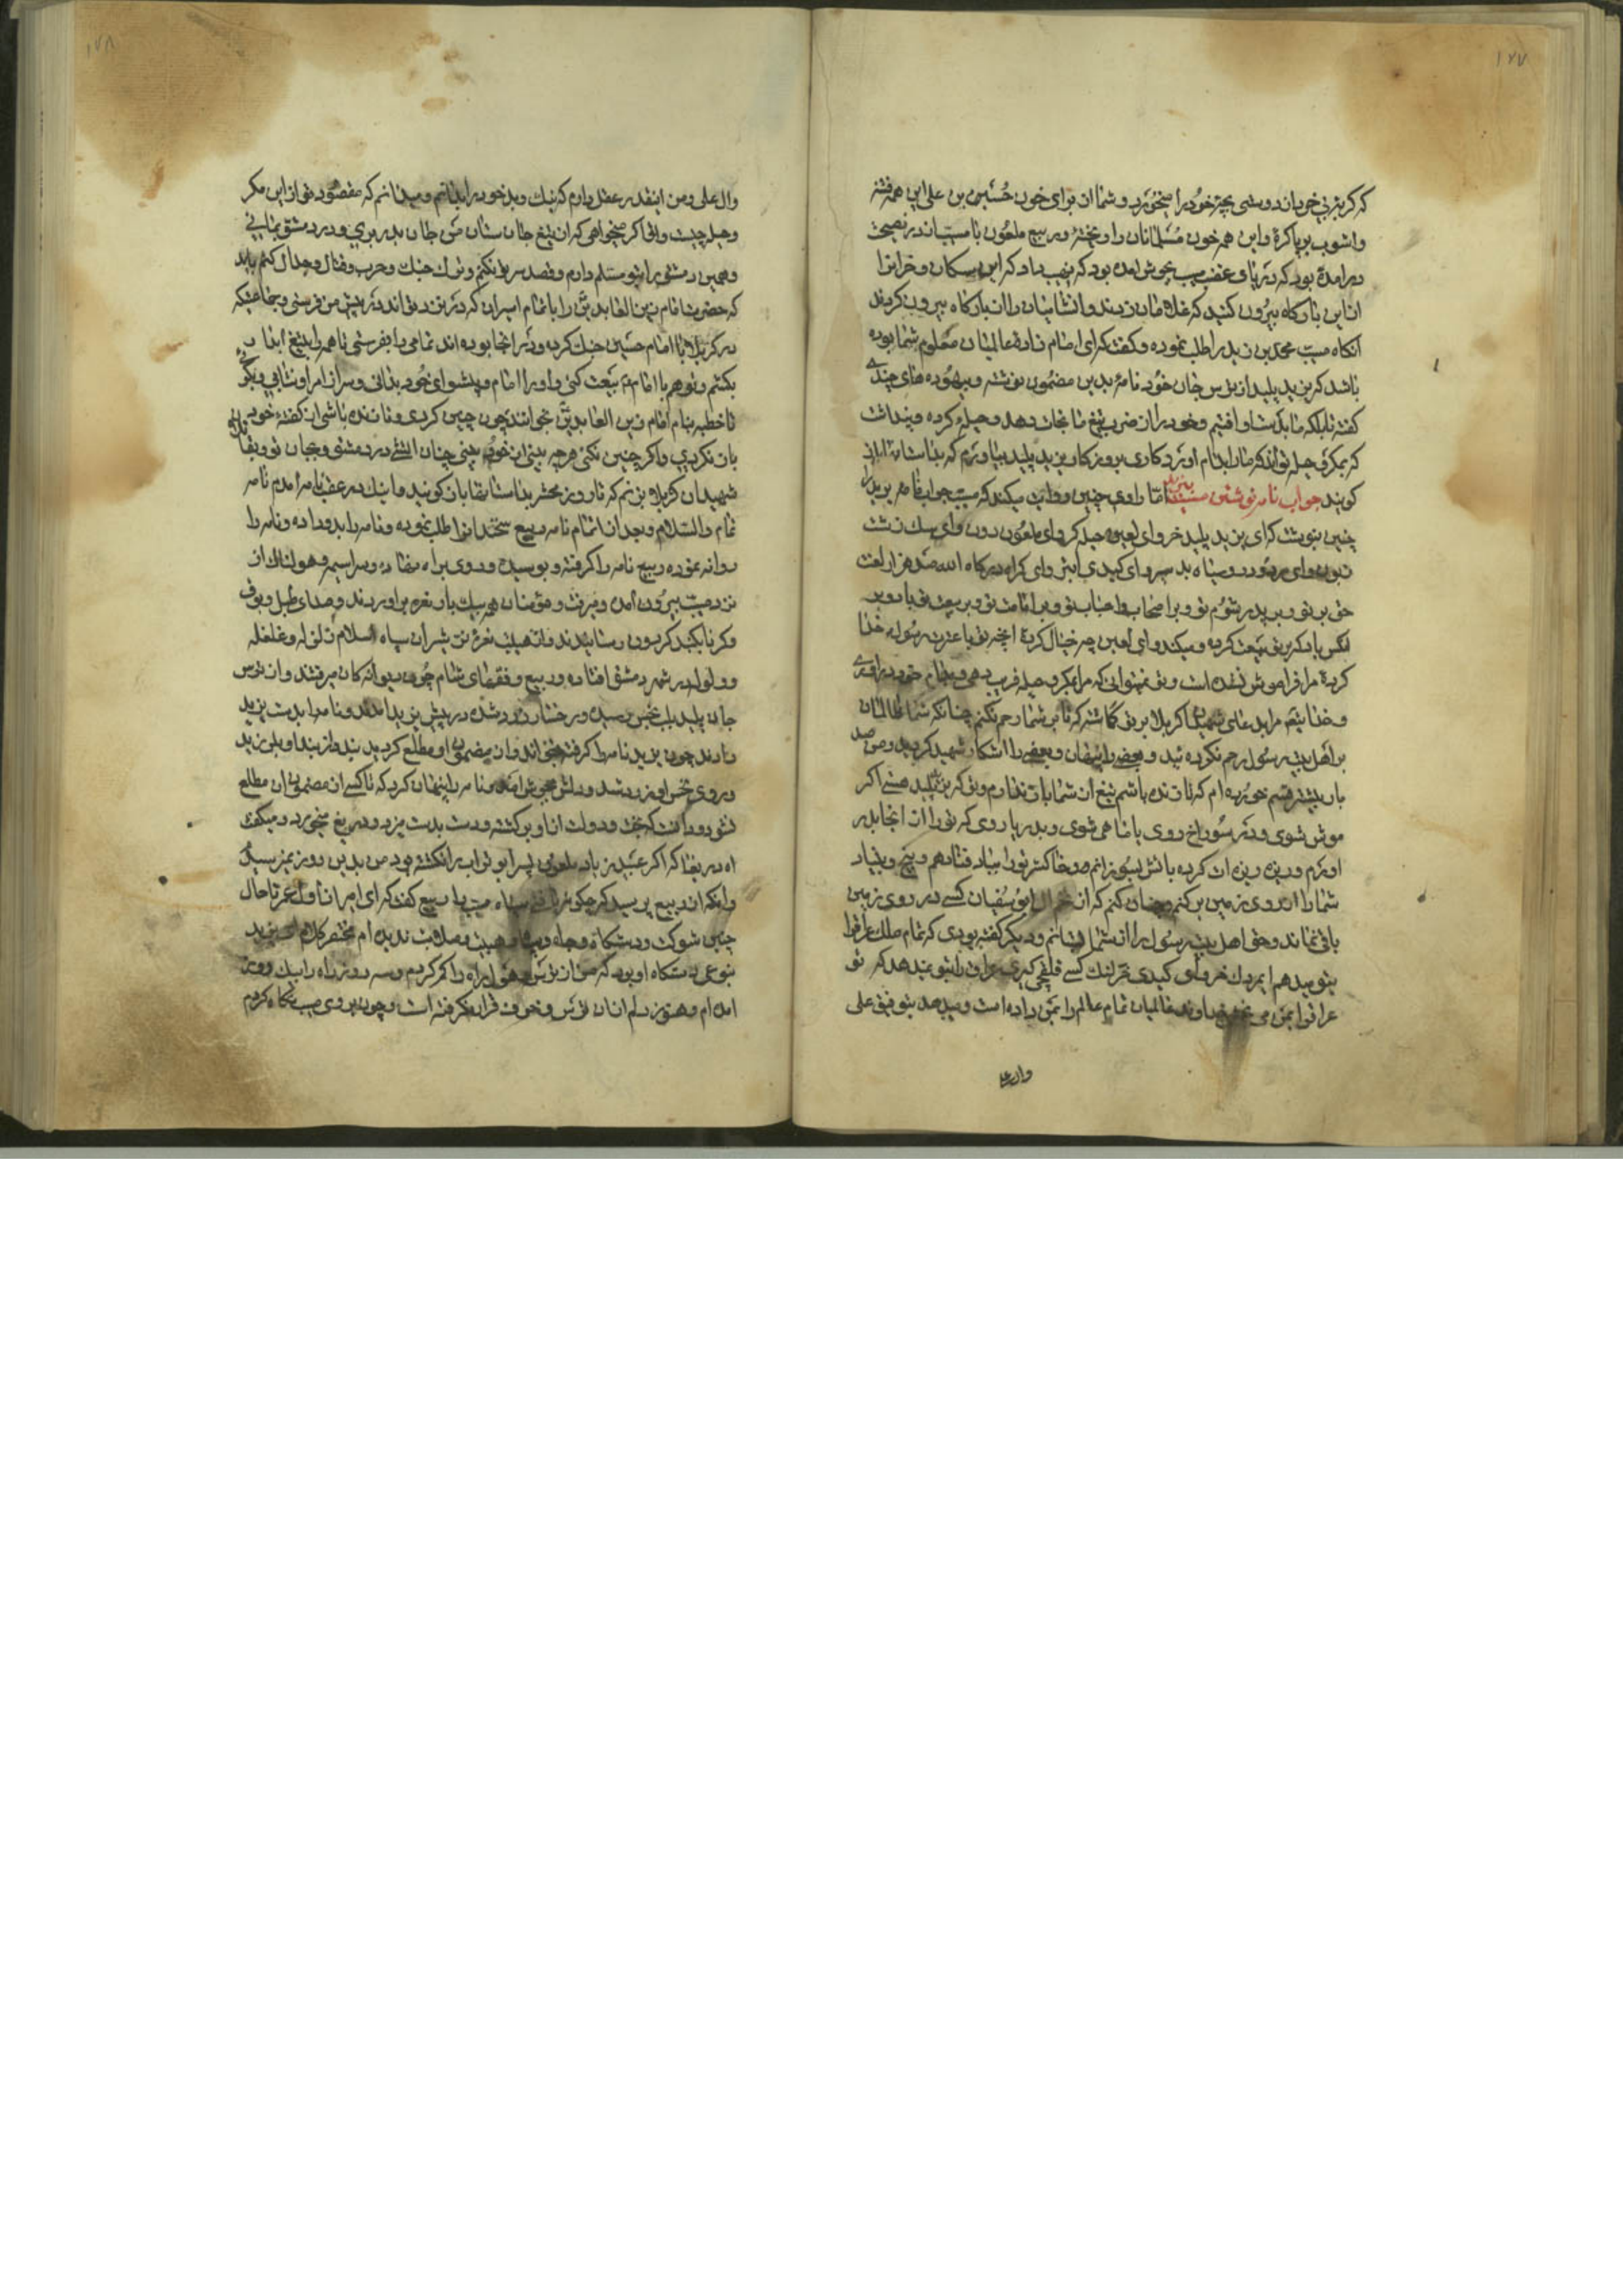 ۱۷۷
که کر
خود را میخورد و شما از برای خون حسین بن علی این همه فتنه
و اشوب برپا کرده و این همه خون مسلمانان را ریخته ربیع ملعون با مسیب در نصیحت
در امده بود که دریای غضب مسیب بجوش امده بود که نهیب داد که این سکان و خرانرا
ازین بارکاه بیرون کنید که غلامان زدند و ان شامیان را از بارکاه بیرون کردند
انکاه مسیب محمد بن زید را طلب نموده و کفت که ای امام زاده عالمیان معلوم شما بوده
باشد که یزید پلید از ترس جان خود نامهٔ بدین مضمون نوشته و بیهوده های چندی
کفته تا بلکه ما بکذشت او افتیم و خود را از ضرب تیغ ما نجات دهد و حیلهٔ کرده و پنداشت
که بمکر و حیله تواند که ما را بدام اورد کاری بروزکار یزید پلید بیاورم که بداستانها باز
کویند جواب نامه نوشتن مسیب یزید اما راوی چنین روایت میکند که مسیب جواب نامه یزید را
چنین نوشت که ای یزید پلید خر و ای لعین حیله کر و ای ملعون دون و ای سک زشت
زبون و ای مردود رو سیاه بد سیر و ای کیدی ابتر و ای کمراه درکاه الله صد هزار لعنت
حق بر تو و بر پدر شوم تو و بر اصحاب و احباب تو و بر امامت تو و بر بیعت تو باد و بر
انکس باد که بتو بیعت کرده و میکند و ای لعین چه خیال کردهٔ انچه تو با عترت رسول خدا
کردهٔ مرا فراموش نشده است و تو نمیتوانی که مرا بمکر و حیله فریب دهی و بدام خود در اوری
و خدایتعالی مرا بدعای شهیدان کربلا بر تو کماشته که تا بر شما رحم نکنم چنانکه شما ظالمان
بر اهل بیت رسول رحم نکرده ئید و بعضی را پنهان و بعضی را اشکار شهید کردید و من صد
بار بیشتر قسم خورده ام که تا زنده باشم تیغ از شما باز ندارم و تو که یزید پلید هستی اکر
موش شوی و در سوراخ روی یا ماهی شوی و بدریا روی که تو را از انجا بدر
اورم و ریزه ریزه ات کرده باتش بسوزانم و خاکستر تو را بباد فنا دهم و بیخ و بنیاد
شما را از روی زمین برکنم و چنان کنم که از خر ال ابو سفیان کسی در روی زمین
باقی نماند و حق اهل بیت رسول را از شما بستانم و دیکر کفته بودی که تمام ملک عراقرا
بتو میدهم ای مردک خر و ای کیدی قرلتک کسی قلتبچی کیدی عراق را بتو نمیدهد که تو
عراقرا بمن می بخشی خداوند عالمیان تمام عالم را بمن داده است و میدهد بتوفیق علی
وال علی
۱۷۸
وال علی و من اینقدر عقل دارم که نیک و بد خود را بدانم و میدانم که مقصود تو از این مکر
و حیله چیست و اما اکر میخواهی که از تیغ جان ستان من جان بدر بری و در دمشق بمانی
و همین دمشق را بتو مسلم دارم و قصد سر تو نکنم و ترک جنک و حرب و قتال و جدال کنم باید
که حضرت امام زین العابدین را با تمام اسیران که در بند تواند در پیش من فرستی و جماعتیکه
در کربلا با امام حسین جنک کرده و در انجا بوده اند تمامی را بفرستی تا همه را بتیغ ابدار
بکشم و تو هم با امام بیعت کنی و او را امام و پیشوای خود بدانی و سر از امر او نتابی و بکوی
تا خطبه بنام امام زین العابدین خوانند چون چنین کردی و تا زنده باشی از کفته خود
باز نکردی و اکر چنین نکنی هر چه بینی از خود بینی چنان اتشی در دمشق و بجان تو و بقاتلان
شهیدان کربلا بزنم که تا روز محشر بداستانها باز کویند و اینک در عقب نامه امدم نامه
تمام والسلام و بعد از اتمام نامه ربیع سختدانرا طلب نموده و نامه را بدو داده و نامه را
روانه نموده ربیع نامه را کرفته و بوسیده و روی براه نهاده و سراسیمه و هولناک از
نزد مسیب بیرون امده و میرفت و مؤمنان همه یکبار نعره براوردند و صدای طبل و بوق
و کرنا بکنبد کردون رسانیدند و از هیبت نعره شیران سپاه اسلام زلزله و غلغله
و ولوله در شهر دمشق افتاده و ربیع و فقهای شام چون دیوانه کان میرفتند و از ترس
جان پلید بلب نجس رسیده و رخسار زرد شده در پیش یزید امدند و نامه را بدست یزید
دادند چون یزید نامه را کرفته بخواند و از مضمون او مطلع کردید بند از بند او بلرزید
و روی نحس او زرد شد و دلش بجوش امده و نامه را پنهان کرد که تا کسی از مضمون ان مطلع
نشود و دانست که بخت و دولت از او برکشته و دست بدست میزد و دریغ میخورد و میکفت
اه دریغا که اکر عبید زیاد ملعون پسر ابو تراب را نکشته بود من بدین روز نمیرسیدم
و انکه از ربیع پرسید که چکونه یافتی سپاه مسیب را ربیع کفت که ای امیر از اول عمر تا حال
چنین شوکت و دستکاه و جاه و سپاه و هیبت و صلابت ندیده ام مختصر کلام ای یزید
بنوعی دستکاه او بود که من از ترس و هول راه را کم کردم و سه روز راه را بیک روز
امده ام و هنوز دلم از ان ترس و خوف قرار نکرفته است و چون بروی مسیب نکاه کردم